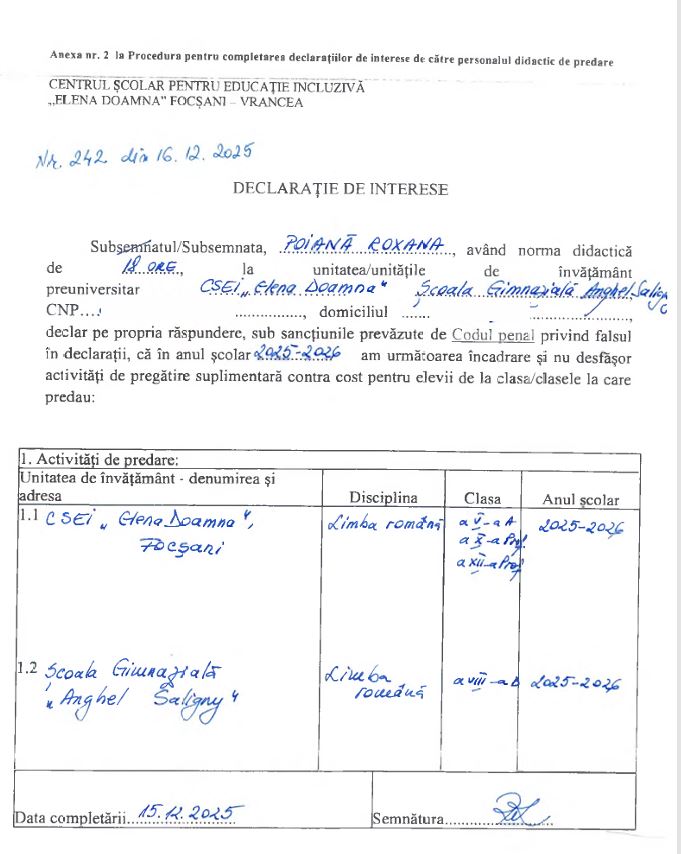 Anexa nr. 2 la Procedura pentru completarea declarațiilor de interese de către personalul didactic de predare
CENTRUL ȘCOLAR PENTRU EDUCAȚIE INCLUZIVĂ
„ELENA DOAMNA” FOCȘANI – VRANCEA
Nr. 242 din 16.12.2025
DECLARAȚIE DE INTERESE
Subsemnatul/Subsemnata, POIANĂ ROXANA, având norma didactică
de 18 ORE, la unitatea/unitățile de învățământ
preuniversitar CSEI „Elena Doamna” Școala Gimnazială Anghel Saligny
CNP...., domiciliul ......,
declar pe propria răspundere, sub sancțiunile prevăzute de Codul penal privind falsul
în declarații, că în anul școlar 2025-2026 am următoarea încadrare și nu desfășor
activități de pregătire suplimentară contra cost pentru elevii de la clasa/clasele la care
predau:
1. Activități de predare:
Unitatea de învățământ - denumirea și
adresa Disciplina Clasa Anul școlar
1.1 CSEI „Elena Doamna”, Limba română a V-a A 2025-2026
Focșani a X-a Prof.
a XII-a Prof
1.2 Școala Gimnazială Limba a VIII-a 2025-2026
„Anghel Saligny” română
Data completării 15.12.2025 Semnătura